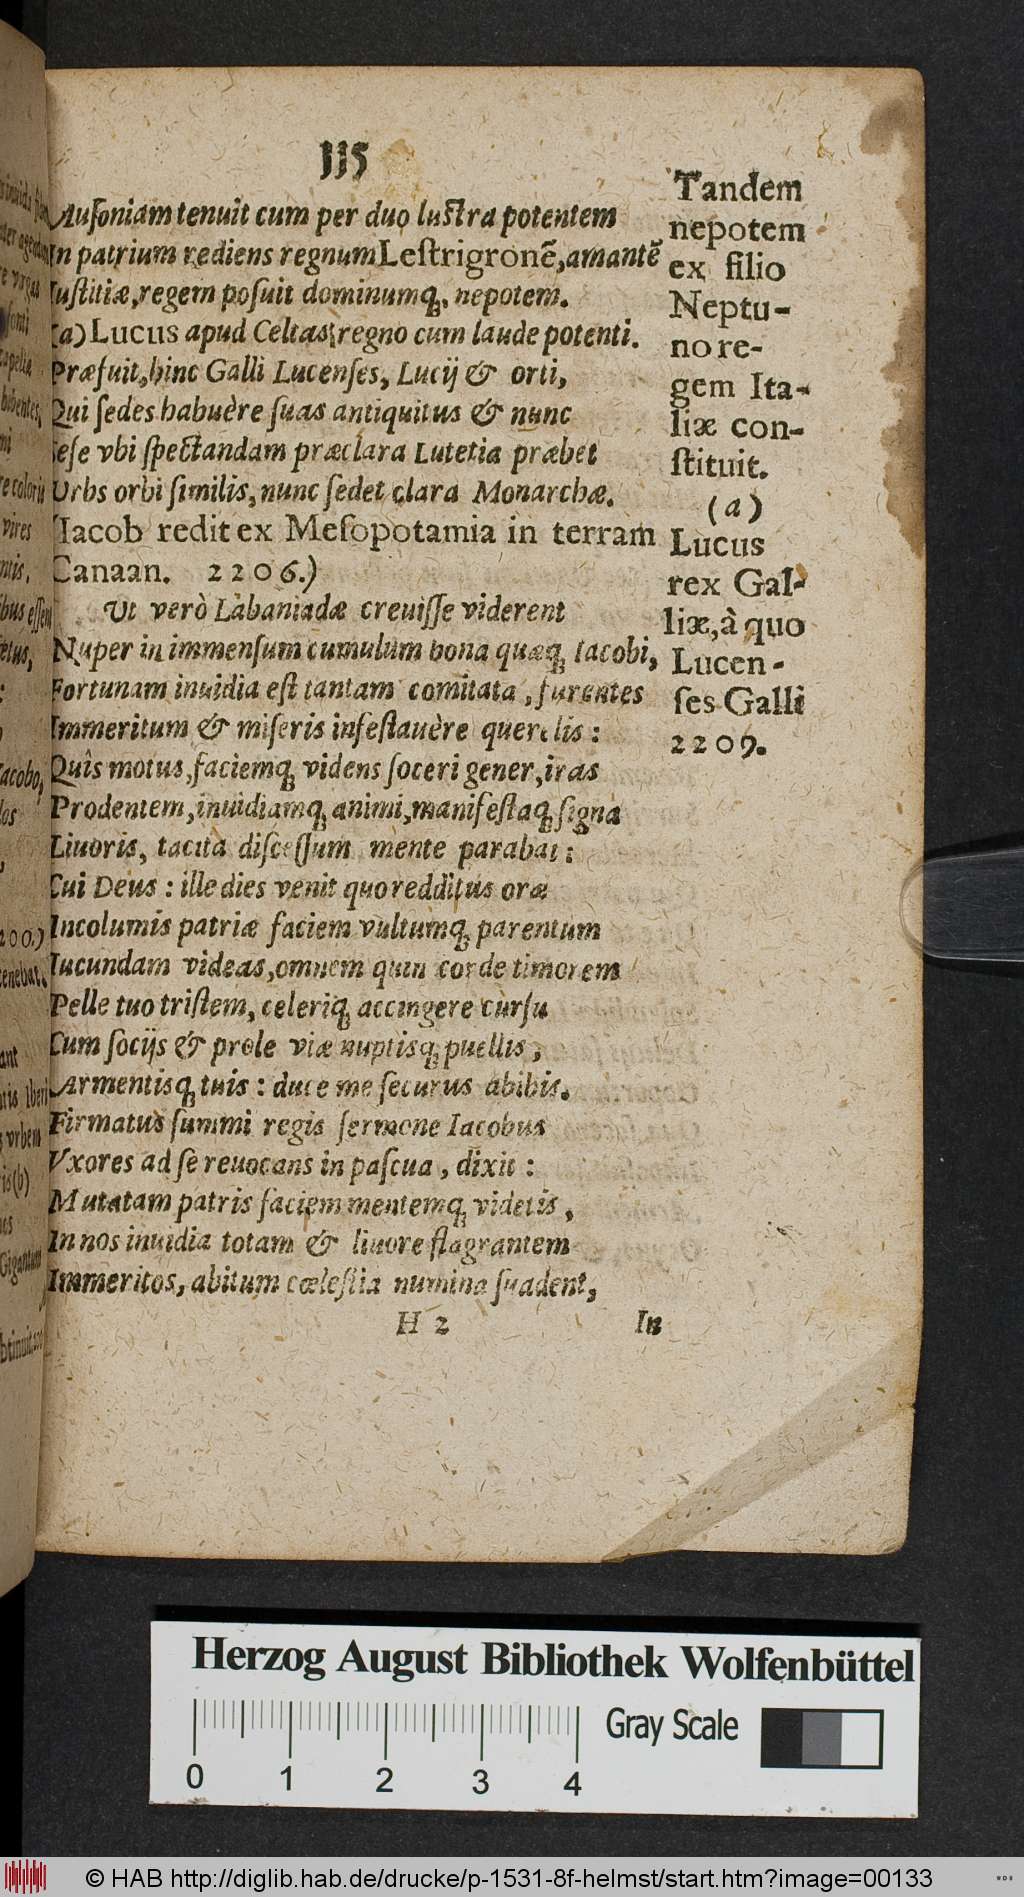 115
Auſoniam tenuit cum per duo luſtra potentem
In patrium rediens regnum Leſtrigronē, amantē
Iuſtitiæ, regem poſuit dominumq́;, nepotem.
(a) Lucus apud Celtas regno cum laude potenti.
Præfuit, hinc Galli Lucenſes, Lucij & orti,
Qui ſedes habuère ſuas antiquitus & nunc
Seſe vbi ſpectandam præclara Lutetia præbet
Urbs orbi ſimilis, nunc ſedet clara Monarchæ.
(Iacob redit ex Meſopotamia in terram
Canaan. 2206.)
Ut verò Labaniadæ creuiſſe viderent
Nuper in immenſum cumulum bona quæq; Iacobi,
Fortunam inuidia eſt tantam comitata, furentes
Immeritum & miſeris infeſtauère querelis:
Quîs motus, faciemq; videns ſoceri gener, iras
Prodentem, inuidiamq; animi, manifeſtaq; ſigna
Liuoris, tacita diſceſſum mente parabat:
Cui Deus: ille dies venit quo redditus oræ
Incolumis patriæ faciem vultumq; parentum
Iucundam videas, omnem quin corde timorem
Pelle tuo triſtem, celeriq; accingere curſu
Cum ſocijs & prole viæ nuptisq; puellis,
Armentisq; tuis: duce me ſecurus abibis.
Firmatus ſummi regis ſermone Iacobus
Vxores ad ſe reuocans in paſcua, dixit:
Mutatam patris faciem mentemq; videtis,
In nos inuidia totam & liuore flagrantem
Immeritos, abitum cœleſtia numina ſuadent,
H 2 In
Tandem
nepotem
ex filio
Neptu-
no re-
gem Ita-
liæ con-
ſtituit.
(a)
Lucus
rex Gal-
liæ, à quo
Lucen-
ſes Galli
2209.
Herzog August Bibliothek Wolfenbüttel
Gray Scale
0 1 2 3 4
© HAB http://diglib.hab.de/drucke/p-1531-8f-helmst/start.htm?image=00133